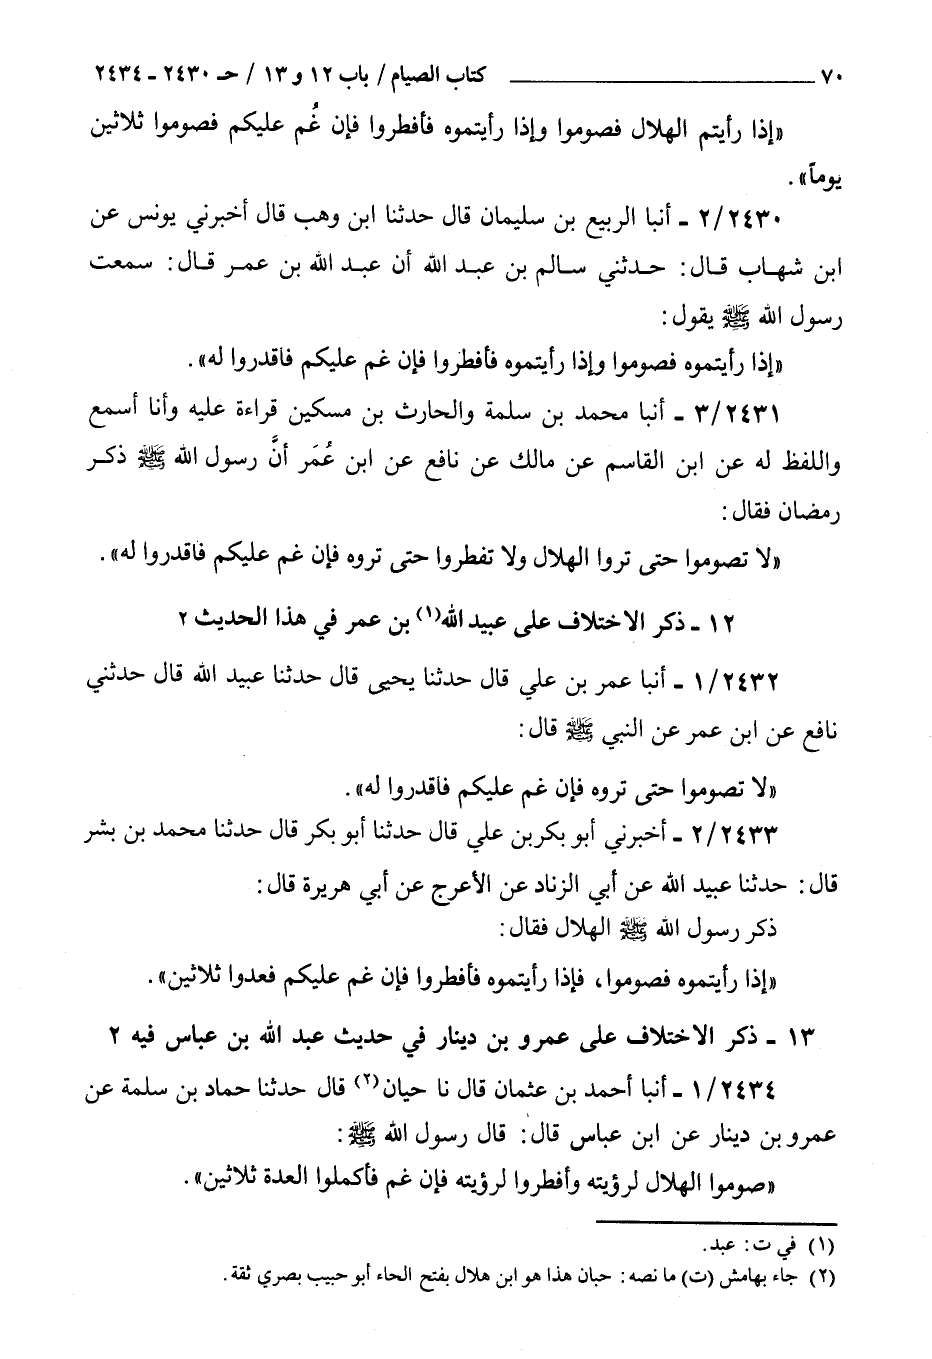 ٧٠ كتاب الصيام / باب ١٢ و ١٣ / حـ ٢٤٣٠ - ٢٤٣٤
«إذا رأيتم الهلال فصوموا وإذا رأيتموه فأفطروا فإن غُم عليكم فصوموا ثلاثين
يوماً».
٢/٢٤٣٠ - أنبا الربيع بن سليمان قال حدثنا ابن وهب قال أخبرني يونس عن
ابن شهاب قال: حدثني سالم بن عبد الله أن عبد الله بن عمر قال: سمعت
رسول الله ﷺ يقول:
«إذا رأيتموه فصوموا وإذا رأيتموه فأفطروا فإن غم عليكم فاقدروا له».
٣/٢٤٣١ - أنبا محمد بن سلمة والحارث بن مسكين قراءة عليه وأنا أسمع
واللفظ له عن ابن القاسم عن مالك عن نافع عن ابن عُمَر أنَّ رسول الله ﷺ ذكر
رمضان فقال:
«لا تصوموا حتى تروا الهلال ولا تفطروا حتى تروه فإن غم عليكم فاقدروا له».
١٢ - ذكر الاختلاف على عبيد الله(١) بن عمر في هذا الحديث ٢
١/٢٤٣٢ - أنبا عمر بن علي قال حدثنا يحيى قال حدثنا عبيد الله قال حدثني
نافع عن ابن عمر عن النبي ﷺ قال:
«لا تصوموا حتى تروه فإن غم عليكم فاقدروا له».
٢/٢٤٣٣ - أخبرني أبو بكر بن علي قال حدثنا أبو بكر قال حدثنا محمد بن بشر
قال: حدثنا عبيد الله عن أبي الزناد عن الأعرج عن أبي هريرة قال:
ذكر رسول الله ﷺ الهلال فقال:
«إذا رأيتموه فصوموا، فإذا رأيتموه فأفطروا فإن غم عليكم فعدوا ثلاثين».
١٣ - ذكر الاختلاف على عمرو بن دينار في حديث عبد الله بن عباس فيه ٢
١/٢٤٣٤ - أنبا أحمد بن عثمان قال نا حبان(٢) قال حدثنا حماد بن سلمة عن
عمرو بن دينار عن ابن عباس قال: قال رسول الله ﷺ:
«صوموا الهلال لرؤيته وأفطروا لرؤيته فإن غم فأكملوا العدة ثلاثين».
(١) في ت: عبد.
(٢) جاء بهامش (ت) ما نصه: حبان هذا هو ابن هلال بفتح الحاء أبو حبيب بصري ثقة.